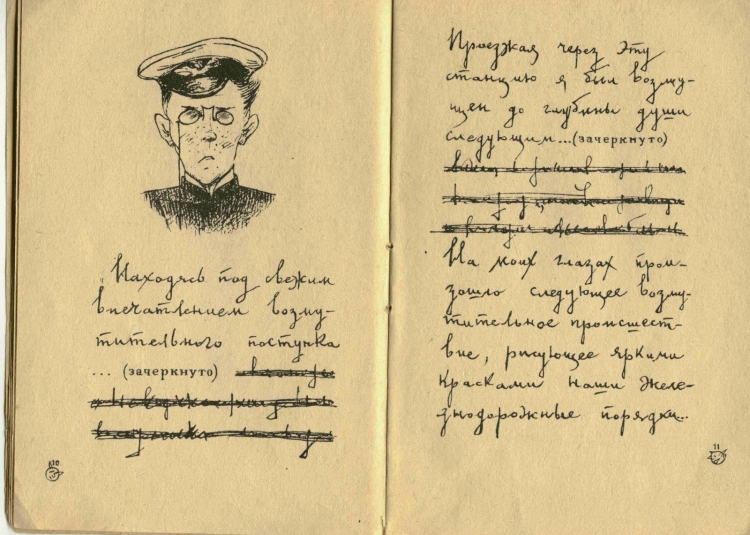 Находясь под свежим
впечатлением возму-
тительного поступка
... (зачеркнуто)
10
Проезжая через эту
станцию я был возму-
щен до глубины души
следующим... (зачеркнуто)
На моих глазах прои-
зошло следующее возму-
тительное происшест-
вие, рисующее яркими
красками наши желе-
знодорожные порядки...
11